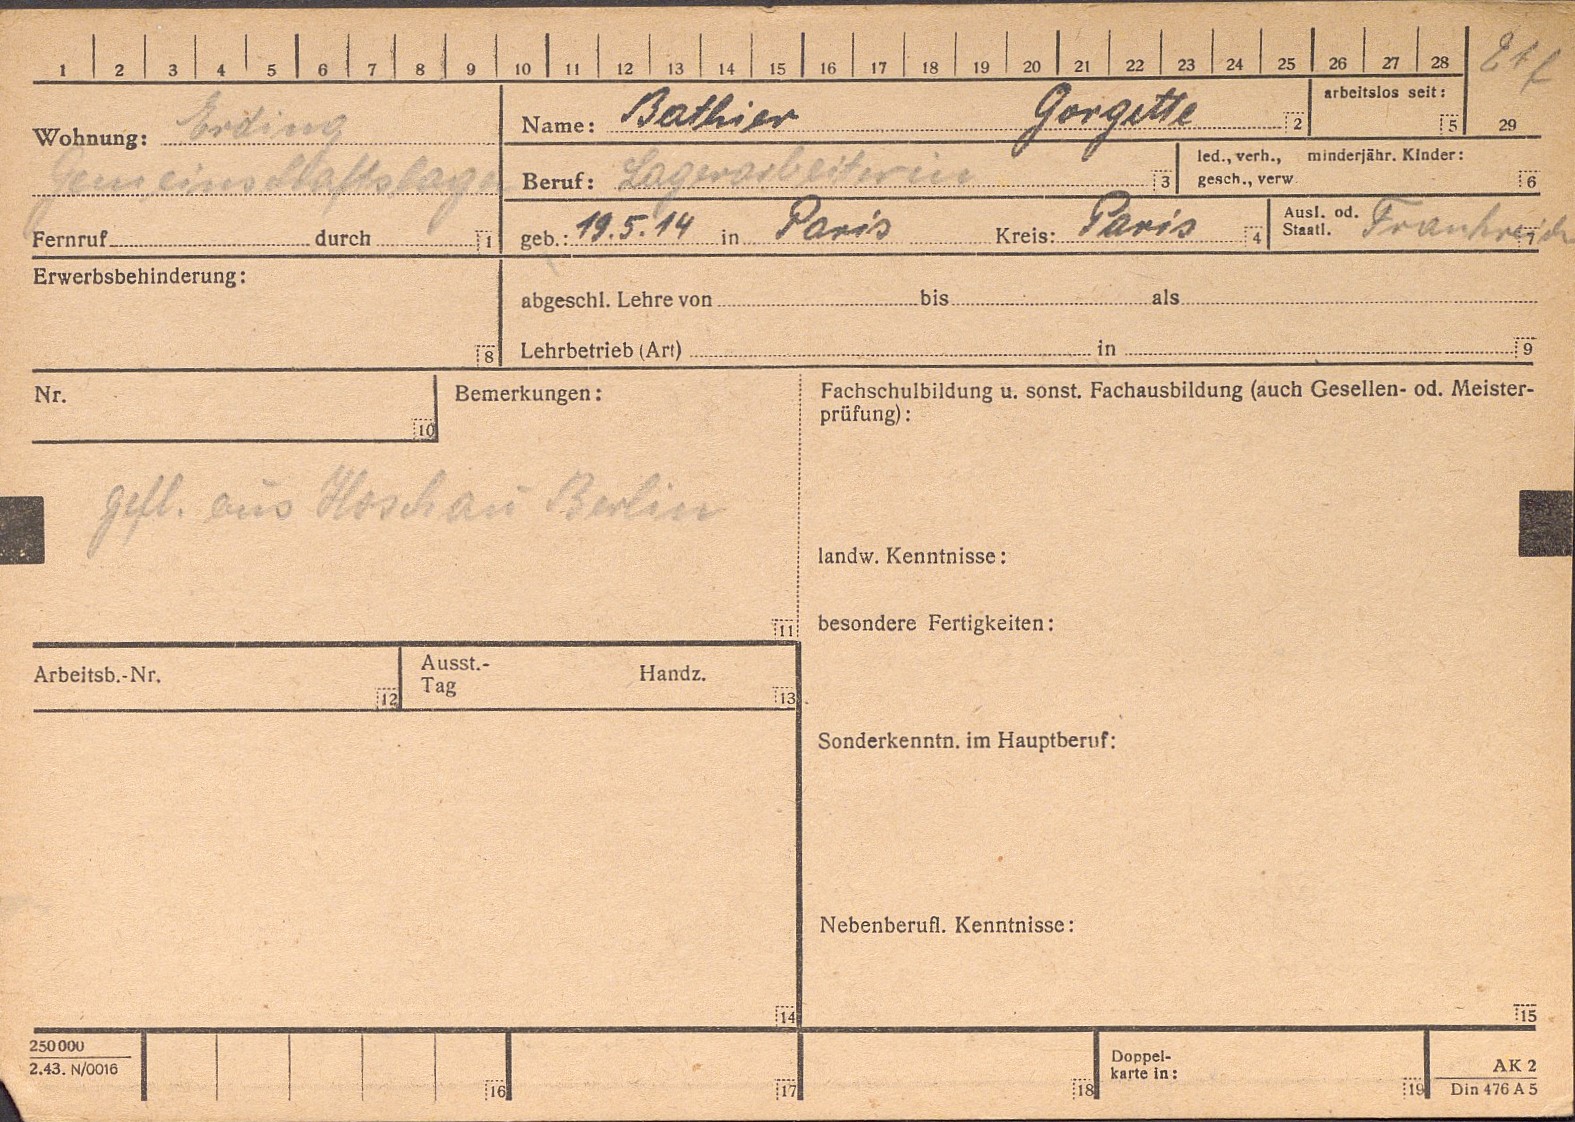 1 2 3 4 5 6 7 8 9 10 11 12 13 14 15 16 17 18 19 20 21 22 23 24 25 26 27 28
Wohnung: Erding
Gemeinschaftslager
Fernruf durch 1
Name: Bathier Gorgette 2
arbeitslos seit: 5 29
Beruf: Lagerarbeiterin 3
led., verh., minderjähr. Kinder:
gesch., verw. 6
geb.: 19.5.14 in Paris Kreis: Paris 4
Ausl. od. Frankreich
Staatl. 7
Erwerbsbehinderung:
8
abgeschl. Lehre von bis als
Lehrbetrieb (Art) in 9
Nr.
10
Bemerkungen:
gefl. aus Berlin
11
Fachschulbildung u. sonst. Fachausbildung (auch Gesellen- od. Meister-
prüfung):
landw. Kenntnisse:
besondere Fertigkeiten:
Arbeitsb.-Nr. 12
Ausst.- Handz.
Tag 13
Sonderkenntn. im Hauptberuf:
Nebenberufl. Kenntnisse:
14
15
250000
2.43. N/0016
16 17 18
Doppel-
karte in: 19
AK 2
Din 476 A 5